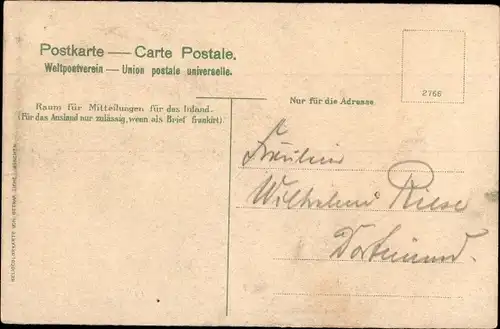 Postkarte — Carte Postale.
Weltpostverein — Union postale universelle.
2766
Raum für Mitteilungen für das Inland.
(Für das Ausland nur zulässig, wenn als Brief frankirt).
Nur für die Adresse.
Fräulein
Wilhelmine Riese
Dortmund.